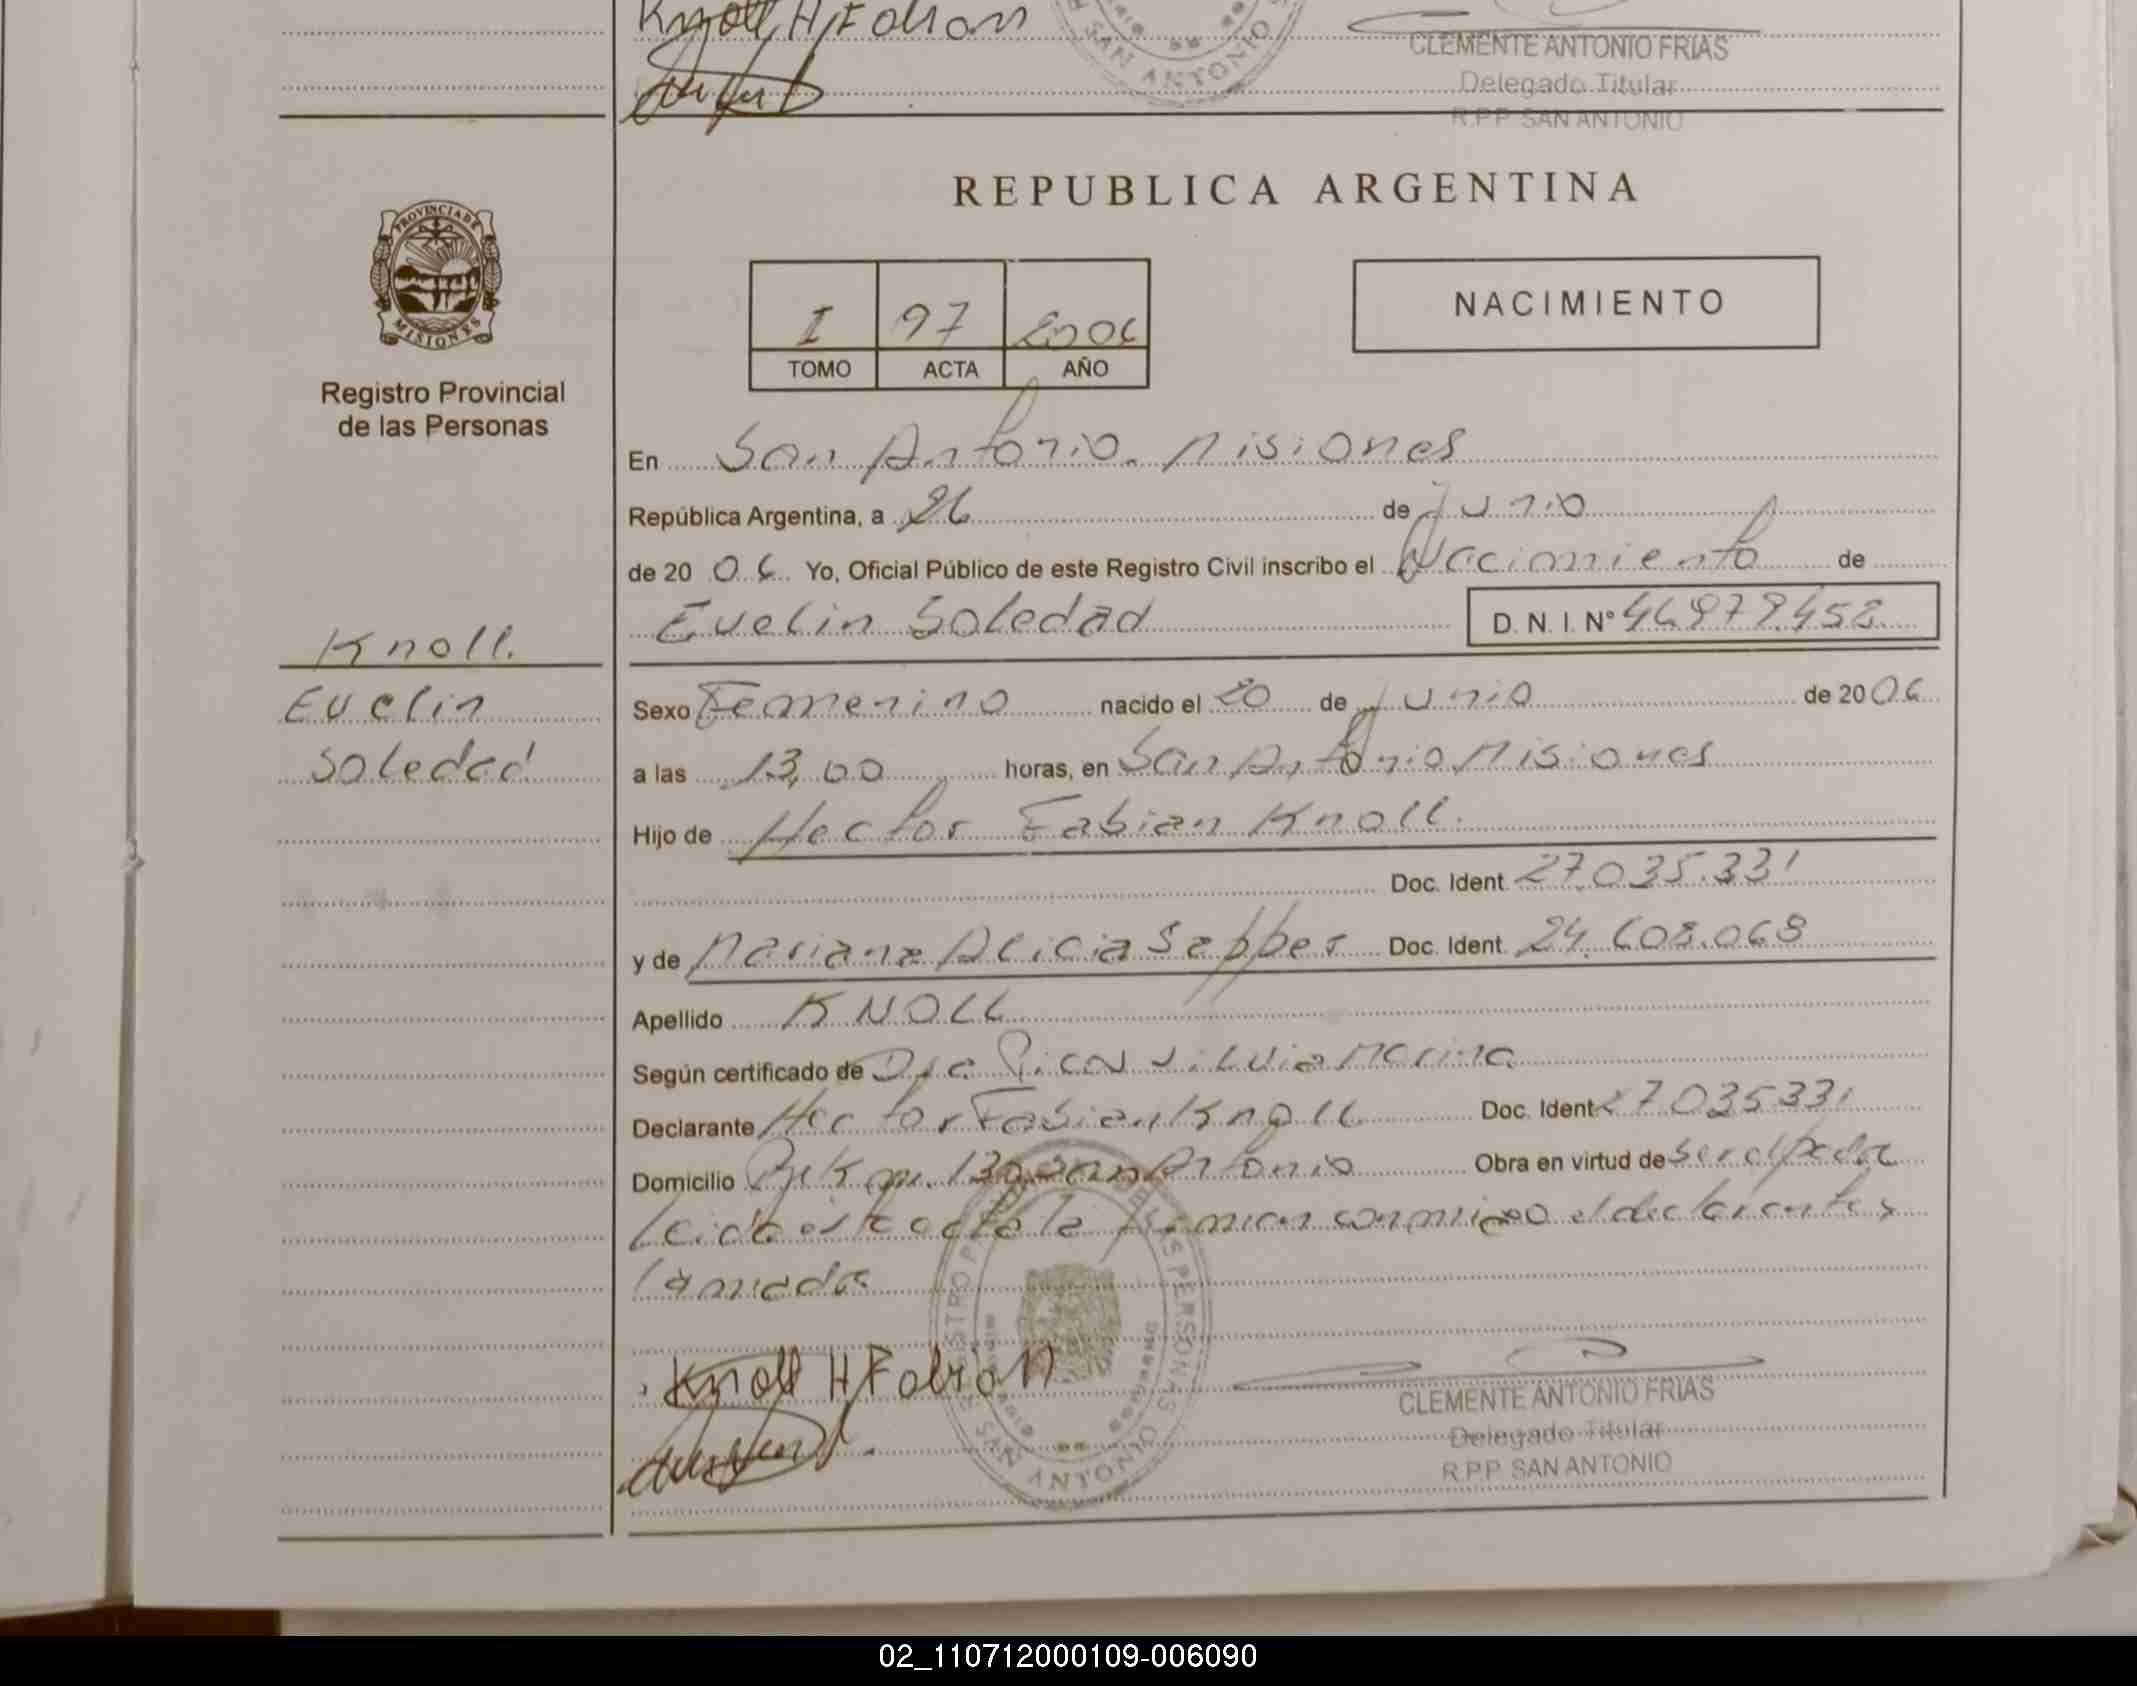 Knoll H. Fabian
CLEMENTE ANTONIO FRIAS
Delegado Titular
R.P.P. SAN ANTONIO
SAN ANTONIO
PROVINCIA DE
MISIONES
Registro Provincial
de las Personas
REPUBLICA ARGENTINA
I 97 2006
TOMO ACTA AÑO
NACIMIENTO
En San Antonio. Misiones
República Argentina, a 26 de Junio
de 20 06 Yo, Oficial Público de este Registro Civil inscribo el Nacimiento de
Evelin Soledad D. N. I. Nº 46.979.458
Knoll.
Evelin
Soledad
Sexo Femenino nacido el 20 de Junio de 20 06
a las 13,00 horas, en San Antonio Misiones
Hijo de Hector Fabian Knoll.
Doc. Ident. 27.035.331
y de Mariana Alicia Sepper Doc. Ident. 24.608.068
Apellido KNOLL
Según certificado de Dra Silvia Marina
Declarante Hector Fabian Knoll Doc. Ident 27035331
Domicilio San Antonio Obra en virtud de ser el padre
Leida el acta la firman conmigo el declarante y
la madre
Knoll H Fabian
REGISTRO PROVINCIAL DE LAS PERSONAS
SAN ANTONIO
CLEMENTE ANTONIO FRIAS
Delegado Titular
R.P.P. SAN ANTONIO
02_110712000109-006090